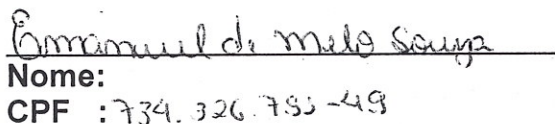 Emanuel de Melo Souza
Nome:
CPF : 734.326.795-49